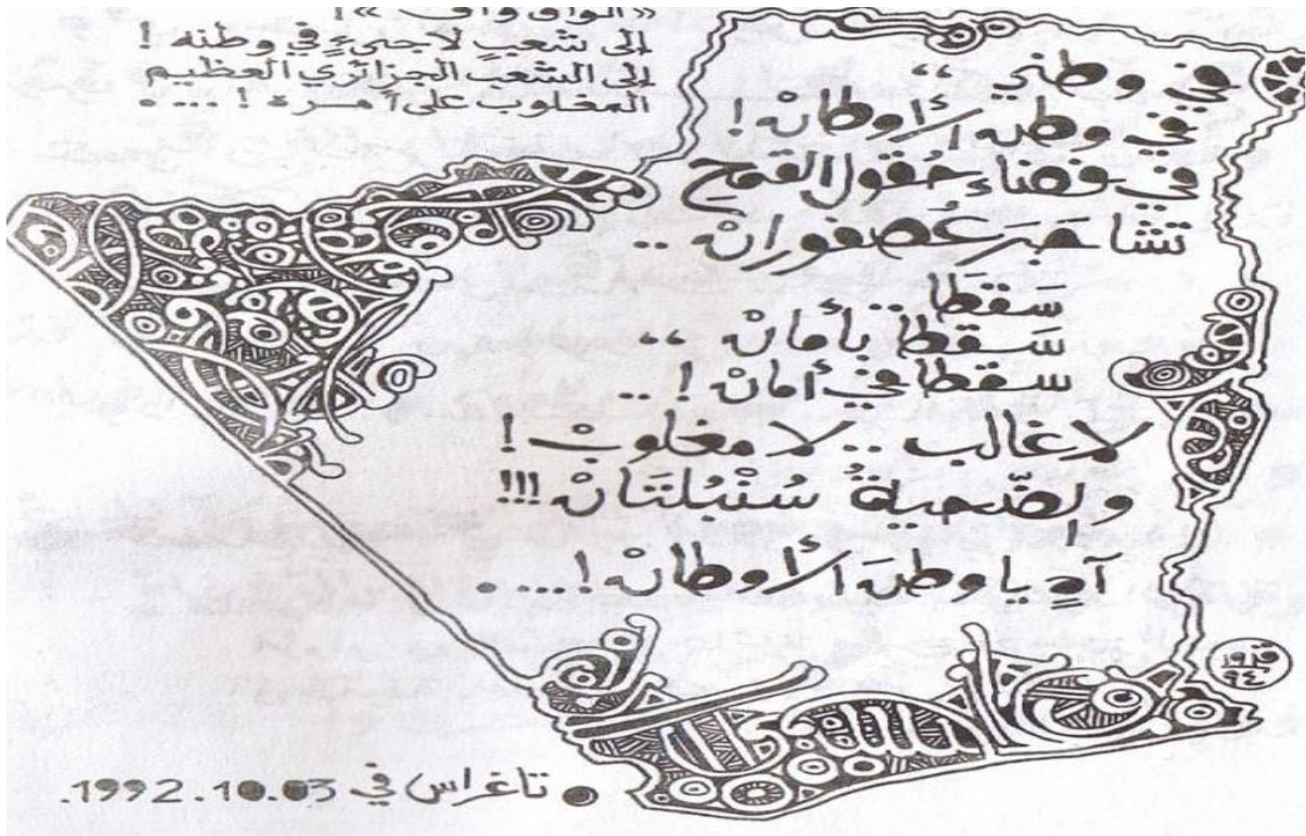 «الواق واق»!
إلى شعب لاجئ في وطنه !
إلى الشعب الجزائري العظيم
المغلوب على أمره ! ....
في وطني ،،
في وطن الأوطانْ !
في فضاء حُقول القمح
تشاجَرَ عُصفورانْ ..
سَقطَا
سَقطا بأمانْ ،،
سقطا في أمانْ ! ..
لا غالب .. لا مغلوبْ !
والضّحيةُ سُنْبُلتَانْ !!!
آهٍ يا وطنَ الأوطانْ !....
● تاغراس في 1992.10.03.